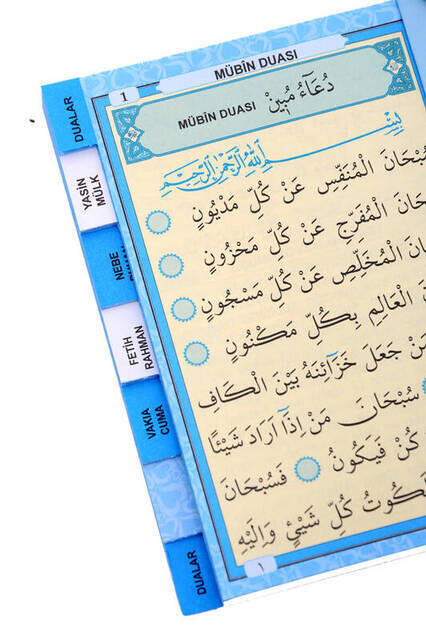 MÜBİN DUASI
1
MÜBİN DUASI دُعَاءُ مُبِينْ
بِسْمِ اللّٰهِ الرَّحْمٰنِ الرَّحِيمِ
الْمُنَفِّسِ عَنْ كُلِّ مَدْيُونٍ
الْمُفَرِّجِ عَنْ كُلِّ مَحْزُونٍ
الْمُخَلِّصِ عَنْ كُلِّ مَسْجُونٍ
الْعَالِمِ بِكُلِّ مَكْنُونٍ
جَعَلَ خَزَٓائِنَهُ بَيْنَ الْكَافِ
سُبْحَانَ مَنْ اِذَٓا اَرَادَ شَيْئًا
كُنْ فَيَكُونُ فَسُبْحَانَ
كُلِّ شَيْئٍ وَاِلَيْهِ
١
DUALAR
YASİN
MÜLK
NEBE
FETİH
RAHMAN
VAKIA
CUMA
DUALAR